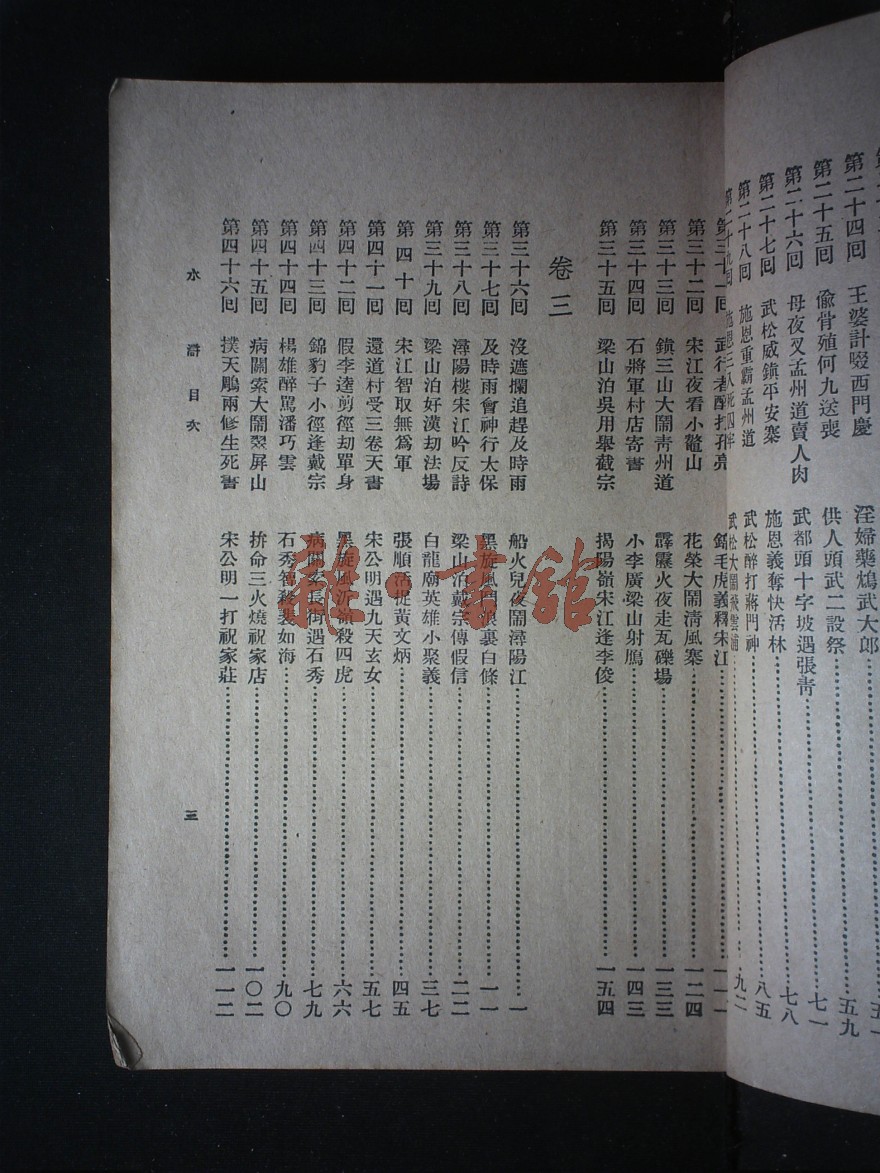 第二十四囘　王婆計啜西門慶　淫婦藥鴆武大郎　五一
第二十五囘　偸骨殖何九送喪　供人頭武二設祭　五九
第二十六囘　母夜叉孟州道賣人肉　武都頭十字坡遇張靑　七一
第二十七囘　武松威鎭平安寨　施恩義奪快活林　七八
第二十八囘　施恩重霸孟州道　武松醉打蔣門神　八五
第二十九囘　施恩三入死囚牢　武松大鬧飛雲浦　九二
第三十一囘　武行者醉打孔亮　錦毛虎義釋宋江
第三十二囘　宋江夜看小鼇山　花榮大鬧淸風寨　一二四
第三十三囘　鎭三山大鬧靑州道　霹靂火夜走瓦礫場　一三三
第三十四囘　石將軍村店寄書　小李廣梁山射鴈　一四三
第三十五囘　梁山泊吳用舉戴宗　揭陽嶺宋江逢李俊　一五四
卷三
第三十六囘　沒遮攔追趕及時雨　船火兒夜鬧潯陽江　一
第三十七囘　及時雨會神行太保　黑旋風鬥浪裏白條　一一
第三十八囘　潯陽樓宋江吟反詩　梁山泊戴宗傳假信　二二
第三十九囘　梁山泊好漢劫法場　白龍廟英雄小聚義　三七
第四十囘　宋江智取無爲軍　張順活捉黃文炳　四五
第四十一囘　還道村受三卷天書　宋公明遇九天玄女　五七
第四十二囘　假李逵剪徑劫單身　黑旋風沂嶺殺四虎　六六
第四十三囘　錦豹子小徑逢戴宗　病關索長街遇石秀　七九
第四十四囘　楊雄醉駡潘巧雲　石秀智殺裴如海　九〇
第四十五囘　病關索大鬧翠屛山　拚命三火燒祝家店　一〇二
第四十六囘　撲天鵰兩修生死書　宋公明一打祝家莊　一一二
水滸目次　三
雜·書館